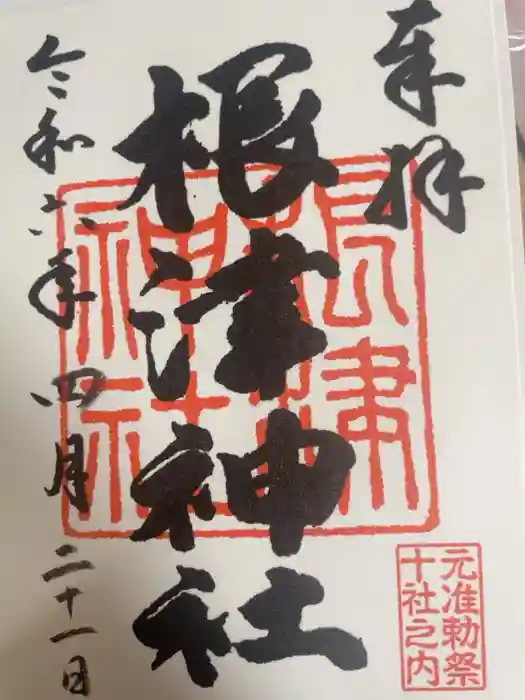 奉拝
根津神社
令和六年四月二十一日
根津神社
元准勅祭
十社之内